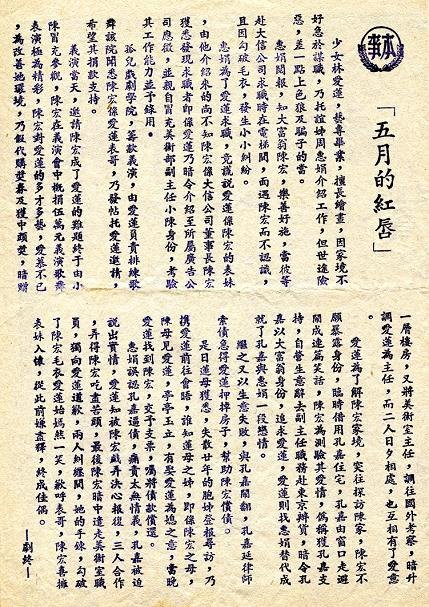 本事
「五月的紅唇」
少女林愛蓮，藝專畢業，擅長繪畫，因家境不
好急於謀職，乃托誼姊周惠娟介紹工作，但世途險
惡，並一點上色狼及騙子的當。
惠娟聞報，知大富翁陳宏，樂善好施，當彼等
赴大信公司求職時在電梯間，面遇陳宏而不認識，
且因勾破毛衣，發生小小糾紛。
惠娟為了愛蓮求職，竟謊說愛蓮係陳宏的表妹
，由他介紹來的尚不知陳宏係大信公司董事長陳宏
獲悉發現求職者即係愛蓮乃暗令介紹至所屬廣告公
司應徵，並親自冒充美術部副主任小陳身份，考驗
其工作能力並予錄用。
孤兒戲劇學院，籌款義演，由愛蓮負責排練歌
舞該院聞悉陳宏係愛蓮表哥，乃發帖托愛蓮邀請，
希望其捐款支持。
義演當天，邀請陳宏成了愛蓮的難題終于由小
陳冒充參觀，陳宏在義演會中慨捐伍萬元義演歌舞
表演極為精彩，陳宏對愛蓮的多才多藝，愛慕不已
，為改善她環境，乃假代購獎券及獲中頭獎，暗贈
一層樓房，又將美術室主任，調往國外考察，暗升
調愛蓮為主任，而二人日夕相處，也互相有了愛意
。
愛蓮為了解陳宏家境，突往探訪陳家，陳宏不
願暴露身份，臨時借用孔嘉住宅，孔嘉由窗口走避
鬧成連篇笑話，陳宏為測驗其愛情，偽稱獲孔嘉支
持，自營生意辭去副主任職務赴東京辦貨，暗令孔
嘉以大富翁身份，追求愛蓮，愛蓮則找惠娟替代成
就了孔嘉與惠娟一段戀情。
繼之又以生意失敗，與孔嘉鬧翻，孔嘉延律師
索債急得愛蓮押掉房子，幫助陳宏償債。
是日蓮母獲悉，失散廿年的胞姊登報尋訪，乃
攜愛蓮前往會晤，誰知蓮母之姊，即係陳宏之母，
陳母見愛蓮，亭亭玉立，有娶愛蓮為媳之意，當晚
愛蓮找到陳宏，交予支票，囑將債款償還。
惠娟誤認孔嘉逼債，痛責太無情義，孔嘉被迫
說出實情，愛蓮知被陳宏戲弄決心報復，三人合作
，弄得陳宏吃盡苦頭，最後陳宏暗中遣走美術室職
員，獨向愛蓮道歉，兩人糾纏間，她的手鍊，勾破
了陳宏毛衣愛蓮始嫣然一笑，歡呼表哥，陳宏喜擁
表妹入懷，從此前嫌盡釋，終成佳偶。
—劇終—